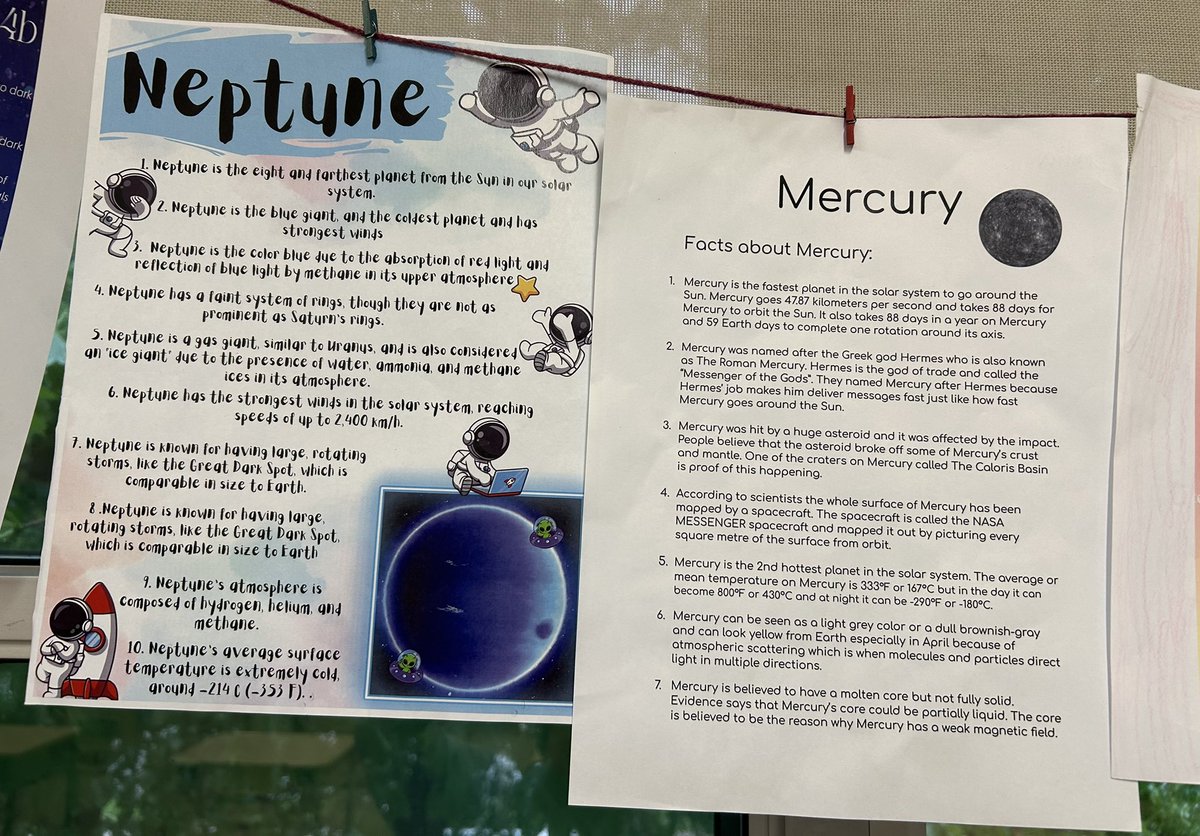 4b
o dark
dark
of
als
Neptune
1. Neptune is the eight and farthest planet from the Sun in our solar
system.
2. Neptune is the blue giant, and the coldest planet and has
strongest winds
3. Neptune is the color blue due to the absorption of red light and
reflection of blue light by methane in its upper atmosphere
4. Neptune has a faint system of rings, though they are not as
prominent as Saturn's rings.
5. Neptune is a gas giant, similar to Uranus, and is also considered
an 'ice giant' due to the presence of water, ammonia, and methane
ices in its atmosphere.
6. Neptune has the strongest winds in the solar system, reaching
speeds of up to 2,400 km/h.
7. Neptune is known for having large, rotating
storms, like the Great Dark Spot, which is
comparable in size to Earth.
8 .Neptune is known for having large,
rotating storms, like the Great Dark Spot,
which is comparable in size to Earth
9. Neptune's atmosphere is
composed of hydrogen, helium, and
methane.
10. Neptune's average surface
temperature is extremely cold,
around -214 C (-353 F). .
Mercury
Facts about Mercury:
1. Mercury is the fastest planet in the solar system to go around the
Sun. Mercury goes 47.87 kilometers per second and takes 88 days for
Mercury to orbit the Sun. It also takes 88 days in a year on Mercury
and 59 Earth days to complete one rotation around its axis.
2. Mercury was named after the Greek god Hermes who is also known
as The Roman Mercury. Hermes is the god of trade and called the
"Messenger of the Gods". They named Mercury after Hermes because
Hermes' job makes him deliver messages fast just like how fast
Mercury goes around the Sun.
3. Mercury was hit by a huge asteroid and it was affected by the impact.
People believe that the asteroid broke off some of Mercury's crust
and mantle. One of the craters on Mercury called The Caloris Basin
is proof of this happening.
4. According to scientists the whole surface of Mercury has been
mapped by a spacecraft. The spacecraft is called the NASA
MESSENGER spacecraft and mapped it out by picturing every
square metre of the surface from orbit.
5. Mercury is the 2nd hottest planet in the solar system. The average or
mean temperature on Mercury is 333°F or 167°C but in the day it can
become 800°F or 430°C and at night it can be -290°F or -180°C.
6. Mercury can be seen as a light grey color or a dull brownish-gray
and can look yellow from Earth especially in April because of
atmospheric scattering which is when molecules and particles direct
light in multiple directions.
7. Mercury is believed to have a molten core but not fully solid.
Evidence says that Mercury's core could be partially liquid. The core
is believed to be the reason why Mercury has a weak magnetic field.